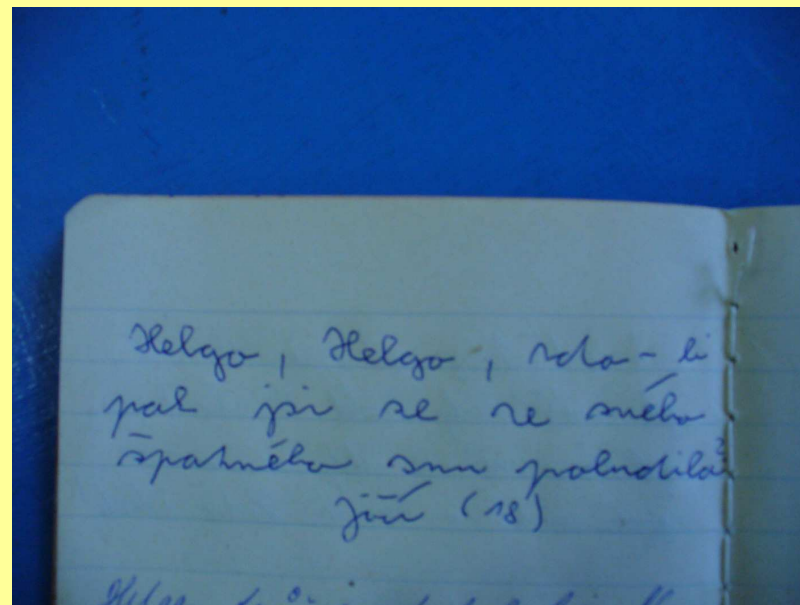 Helgo, Helgo, zda-li
pak jsi se ze svého
špatného snu probudila?
Jiří (18)